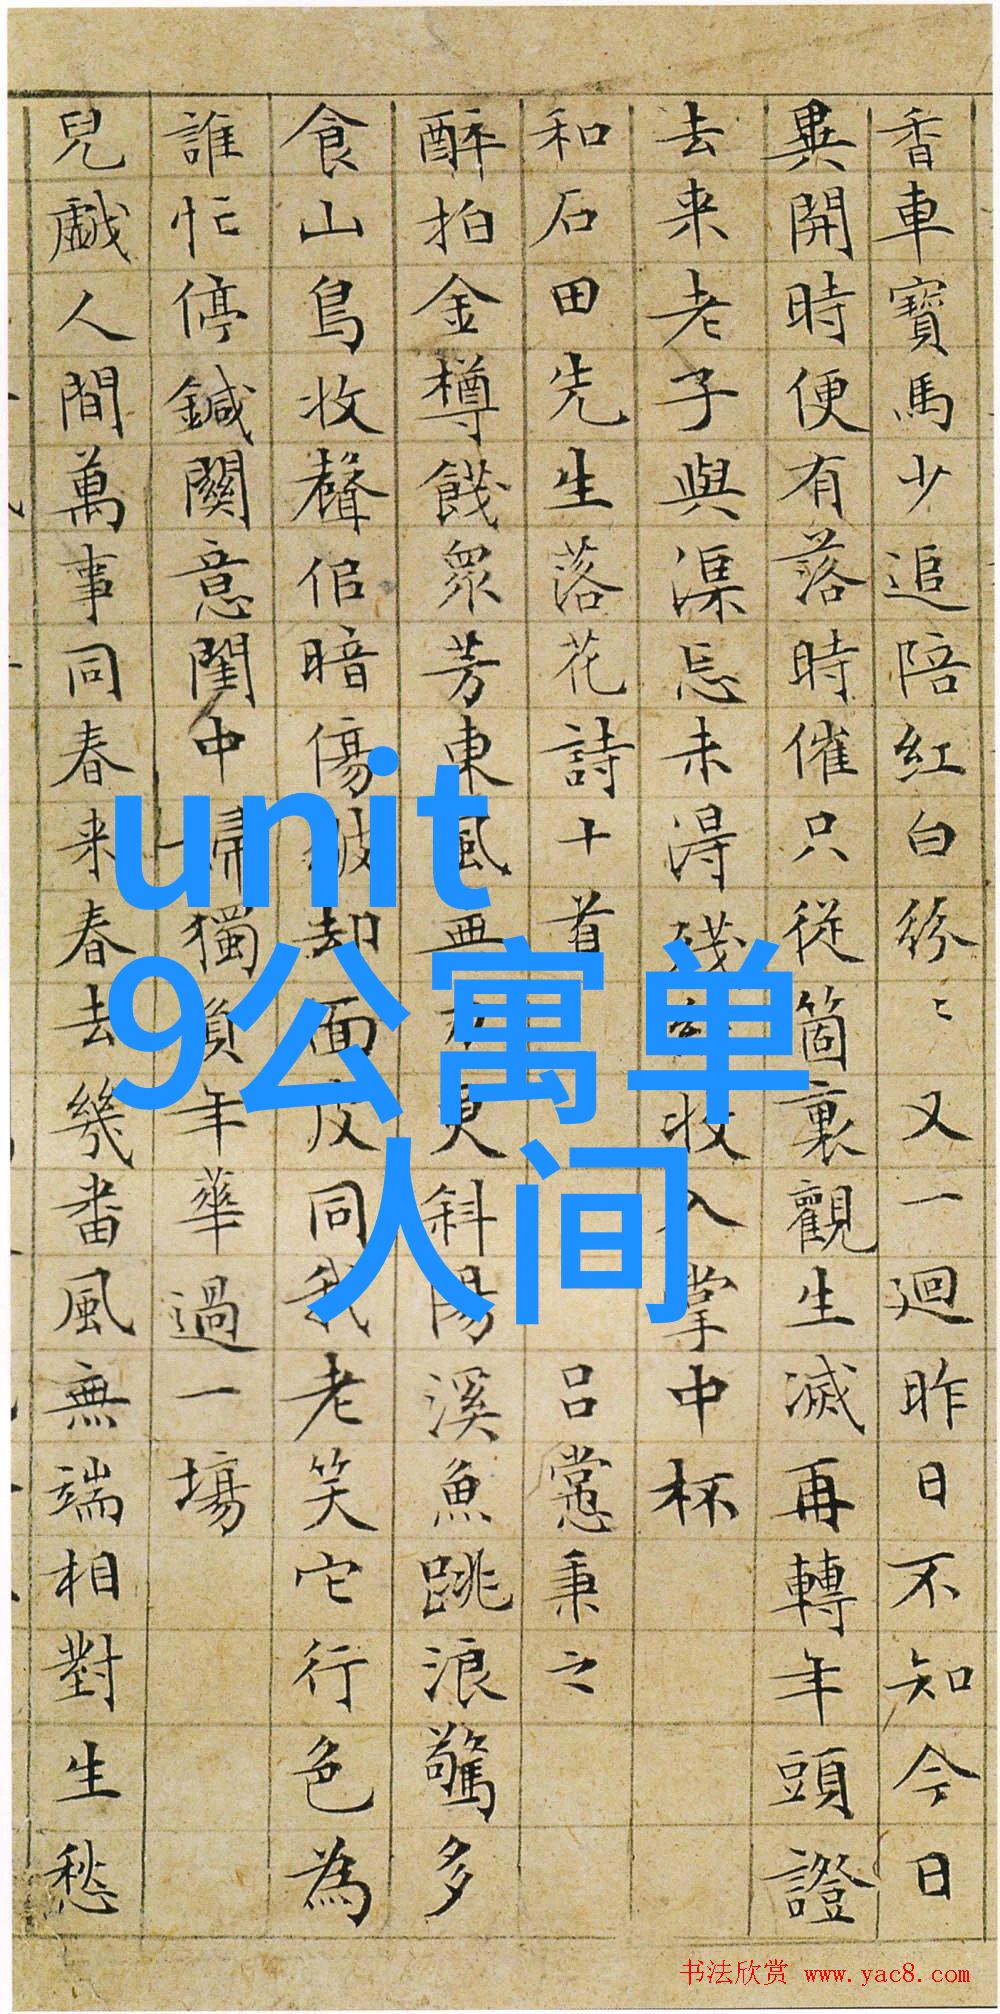 香車寶馬少追陪紅白紛〻又一迴昨日不知今日
異開時便有落時催只從箇裏觀生滅再轉年頭證
去来老子與渠忘未得殘收入掌中杯
和石田先生落花詩十首 呂㦂秉之
醉拍金樽餞衆芳東風更斜陽溪魚跳浪驚多
食山鳥收聲佀暗傷破却面皮同我老笑它行色為
誰忙停鍼關意閨中婦獨負年華過一場
兒戯人間萬事同春来春去幾番風無端相對生愁
unit
9公寓单
人间
书法欣赏 www.yac8.com